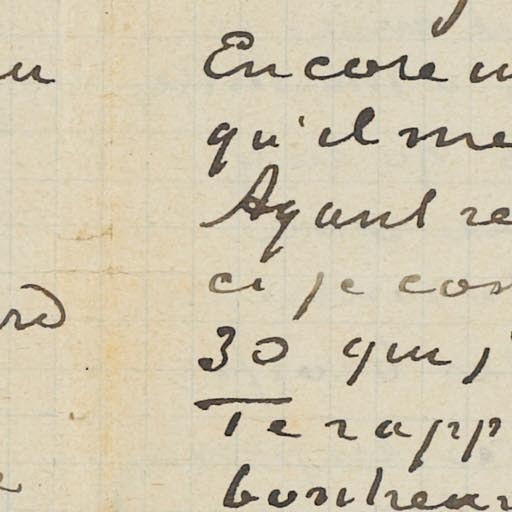 Encore
qu'il me
Ayant re
ci je con
30 que j'
Te rapp
bonheur